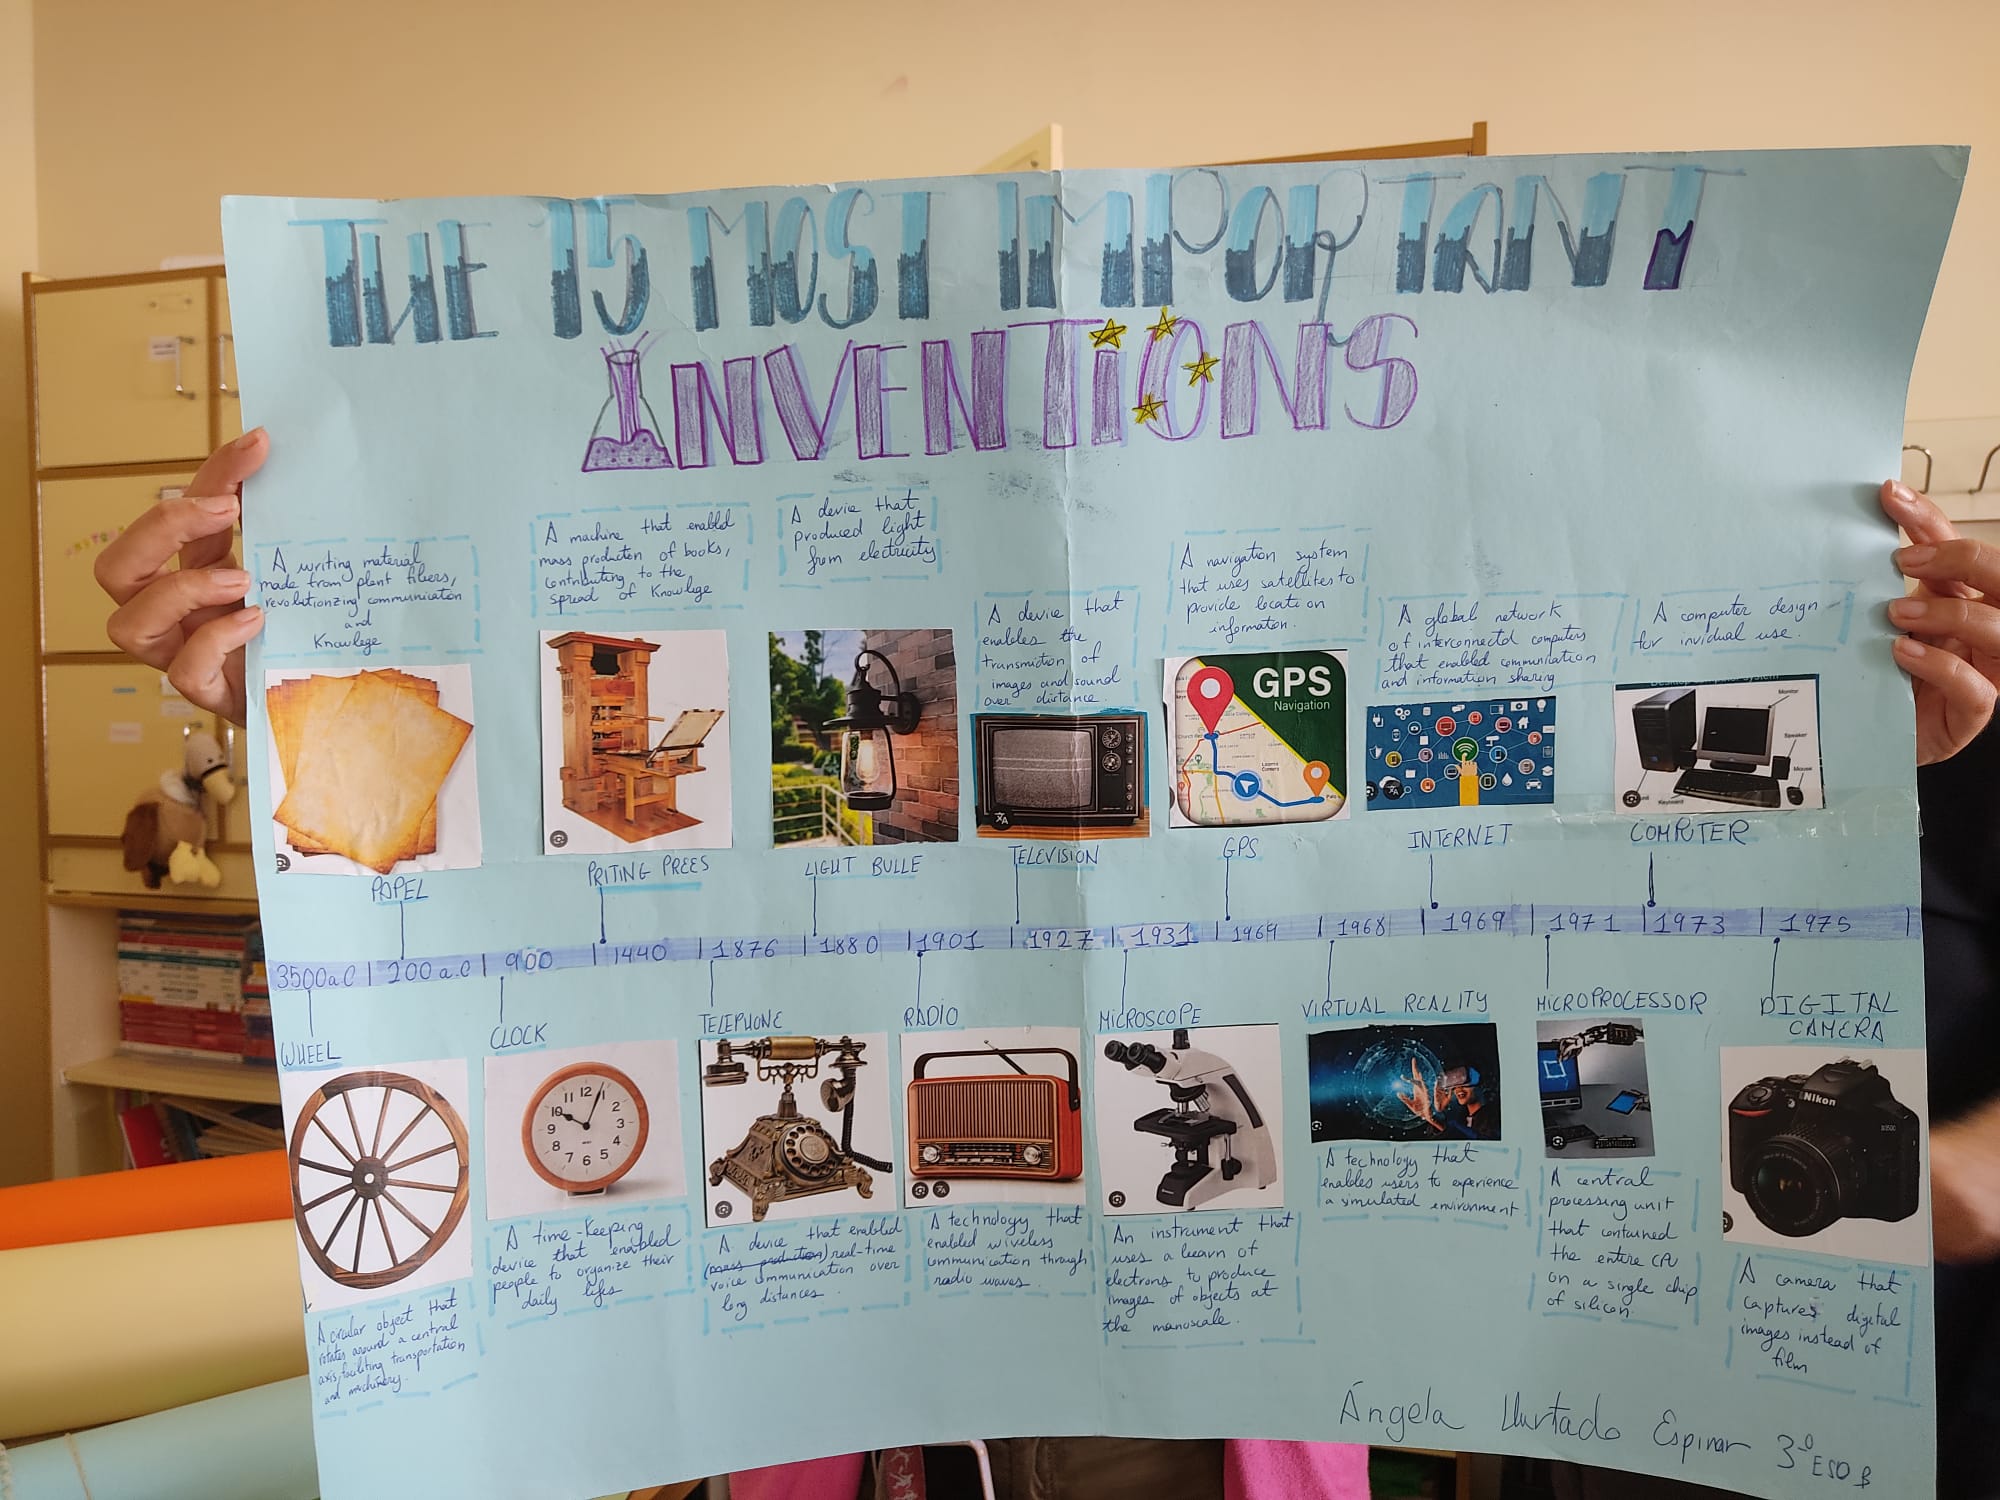 THE 15 MOST IMPORTANT
INVENTIONS
A writing material
made from plant fibers,
revolutionzing communication
and
Knowlege
A machine that enabled
mass producten of books,
contributing to the
spread of Knowlege
A device that
produced light
from electricity
A device that
enables the
transmiction of
images and sound
over distance.
A navigation system
that uses satellites to
provide location
information.
A global network
of interconnectd computers
that enabled communication
and information sharing
A computer design
for invidual use.
GPS
Navigation
Monitor
Speaker
Mouse
Keyboard
PAPEL
PRITING PREES
LIGHT BULLE
TELEVISION
GPS
INTERNET
COMPUTER
3500a.C | 200 a.C | 900 | 1440 | 1876 | 1880 | 1901 | 1927 | 1931 | 1969 | 1968 | 1969 | 1971 | 1973 | 1975 |
WHEEL
CLOCK
TELEPHONE
RADIO
MICROSCOPE
VIRTUAL REALITY
MICROPROCESSOR
DIGITAL
CAMERA
11 12 2 3 4 5 6 7 8 9 10
Nikon
D3500
A circular object that
rotates around a central
axis, faciliting transportation
and machinery.
A time-keeping
device that enabled
people to organize their
daily lifes
A device that enabled
(mass production) real-time
voice communication over
long distances.
A technology that
enabled wireless
communication through
radio waves.
An instrument that
uses a beam of
electrons to produce
images of objects at
the manoscale.
A technology that
enables users to experience
a simulated environment
A central
processing unit
that contained
the entire CPU
on a single chip
of silicon.
A camera that
captures digital
images instead of
film
Ángela Hurtado Espinar 3º ESO B